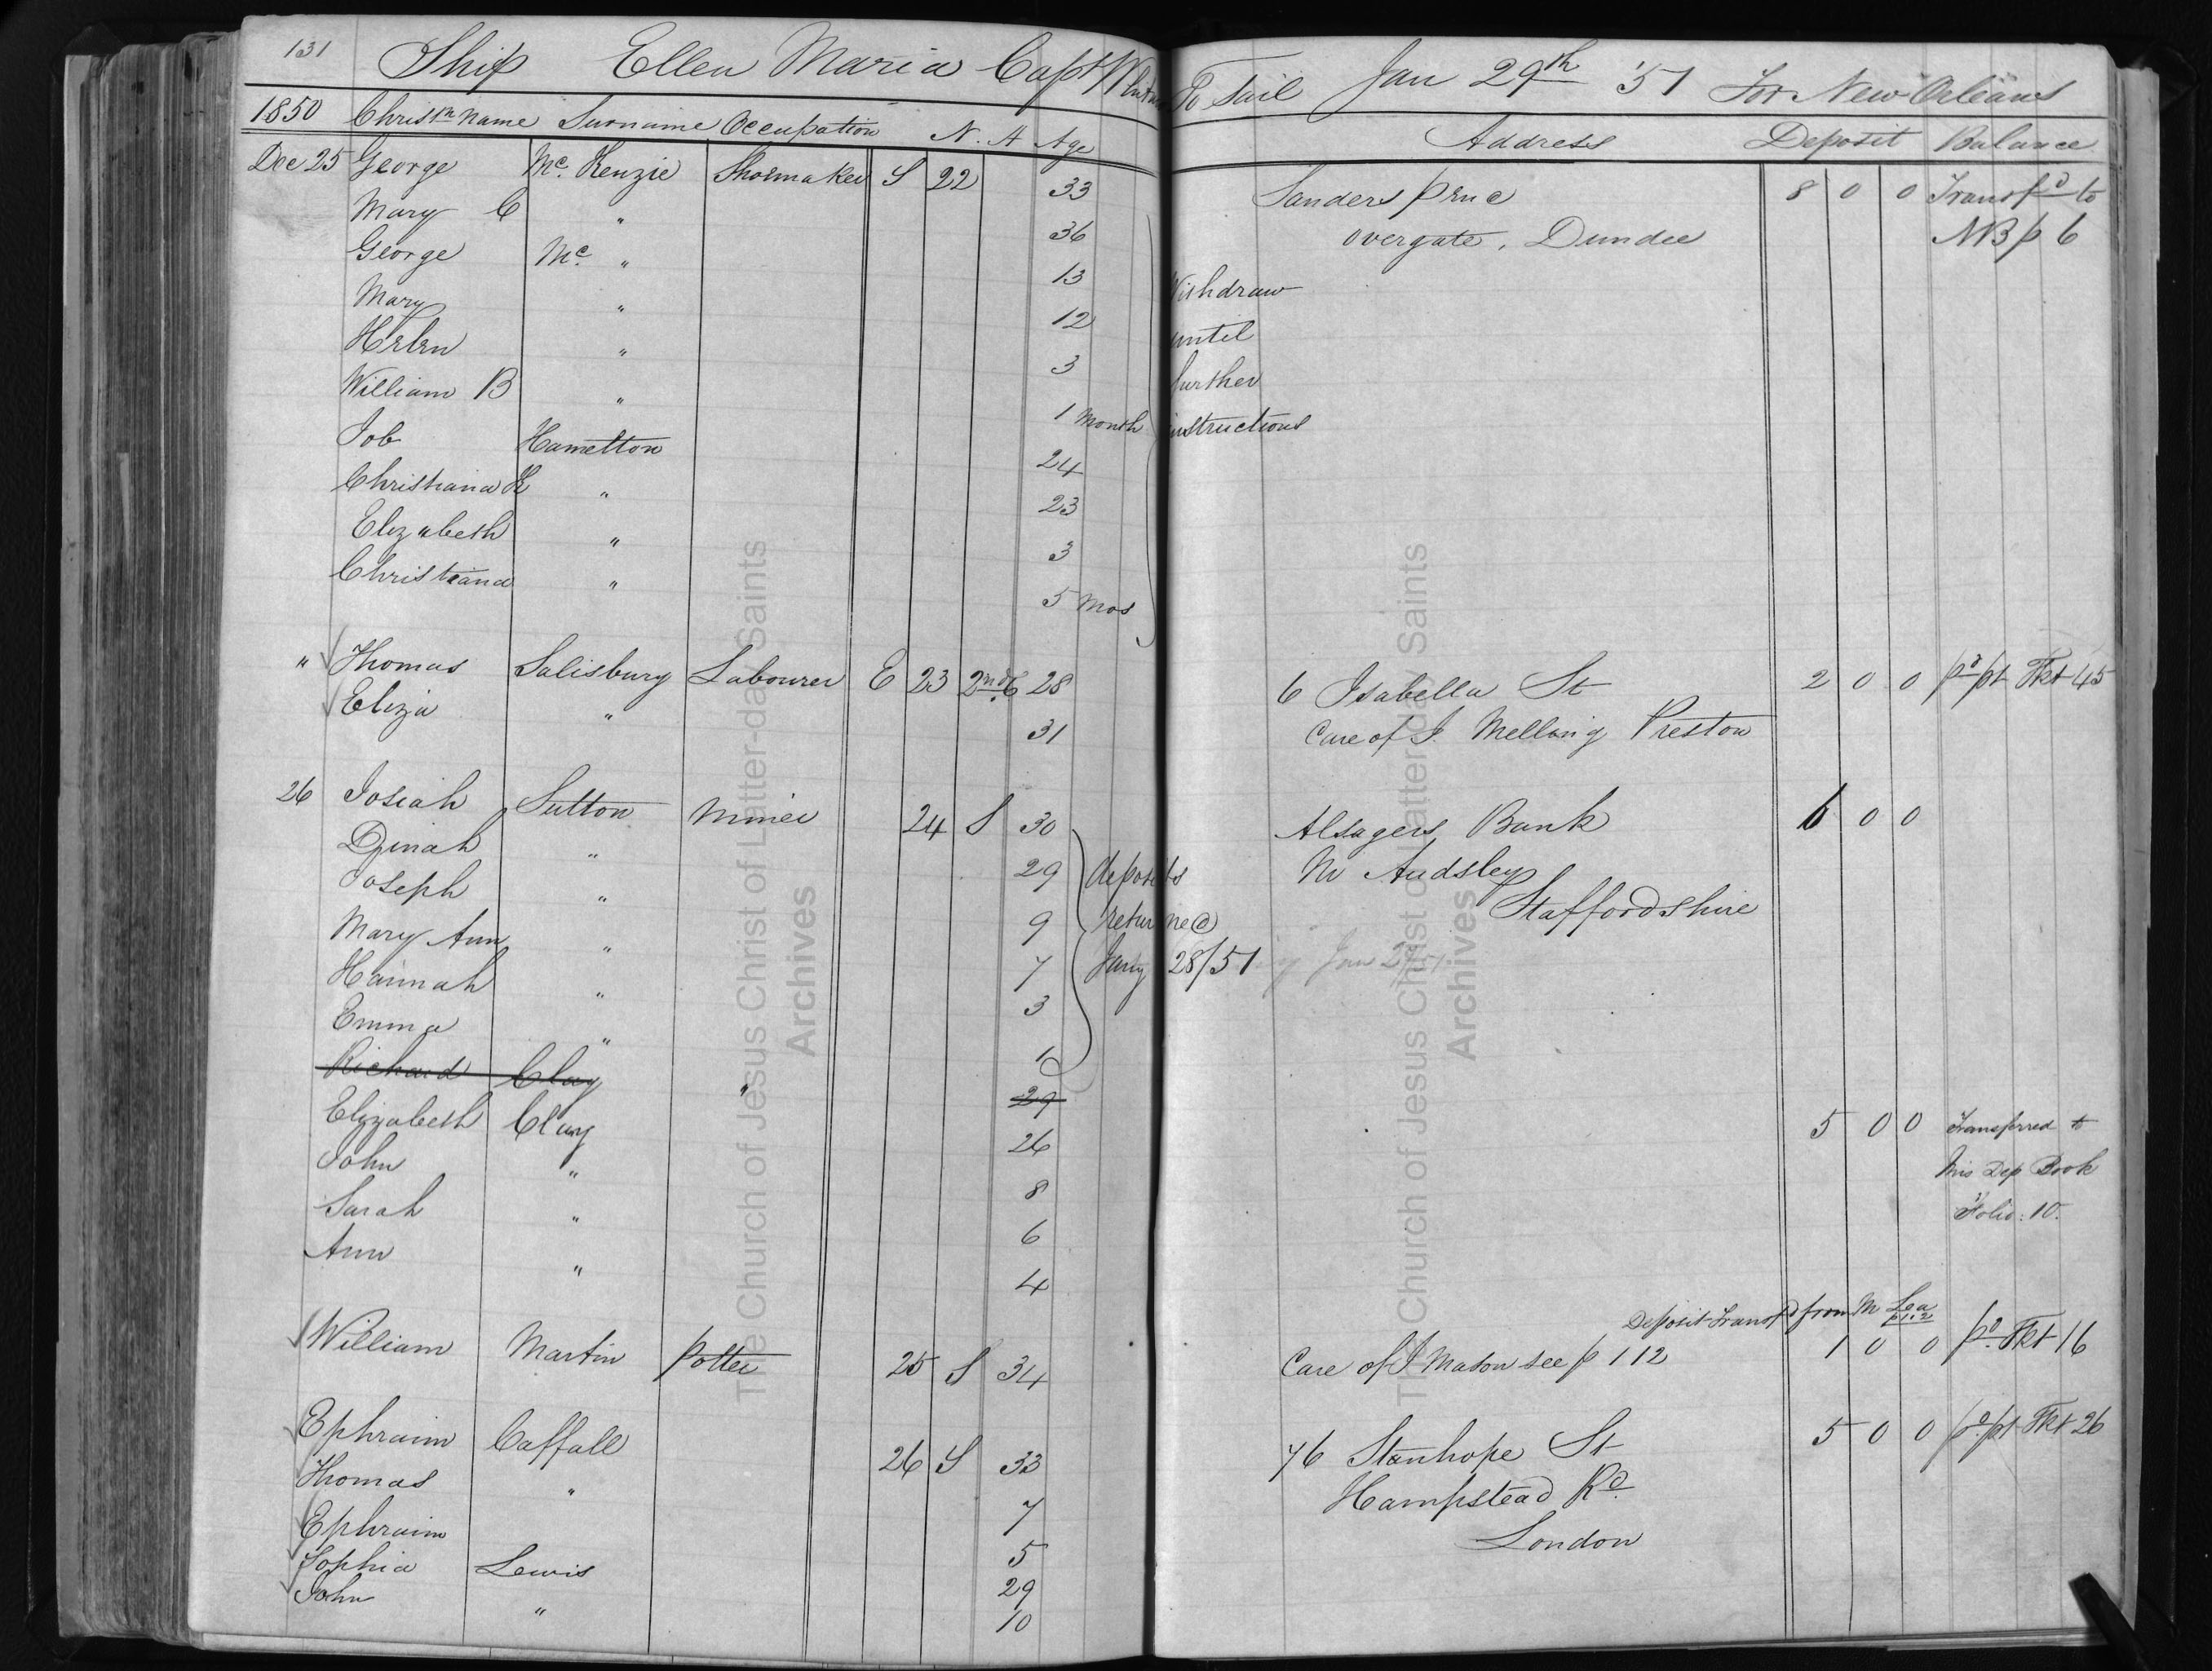 131 Ship Ellen Maria Capt To Sail Jan 29th '51 For New Orleans
1850 Christn Name Surname Occupation N. A Age Address Deposit Balance
Dec 25 George Mc. Kenzie Shoemaker S 22 33 Sanders pend 8 0 0 Transfd to
Mary C " 36 overgate, Dundee NB p 6
George Mc. " 13 Withdraw
Mary " 12 until
Helen " 3 further
William B " 1 Month instructions
Job Hamelton 24
Christiana K " 23
Elizabeth " 3
Christiana " 5 Mos
" Thomas Salisbury Labourer E 23 2nd C. 28 6 Isabella St 2 0 0 pd pt Tkt 45
Eliza " 31 Care of J. Melling Preston
26 Josiah Sutton Miner 24 S 30 Alsagers Bank 6 0 0
Dinah " 29 deposits Nr Audsley
Joseph " 9 returned Staffordshire
Mary Ann " 7 Jany 28/51
Hannah " 3
Emma " 1
Richard Clay " 29
Elizabeth Clay 26 5 0 0 Transferred to
John " 8 Mis Dep Book
Sarah " 6 Folio: 10.
Ann " 4
Deposit Transfd from M Lea p 112
William Martin Potter 25 S 34 Care of J Mason see p 112 1 0 0 pd. Tkt 16
Ephraim Caffall 26 S 33 76 Stanhope St 5 0 0 pd pt Tkt 26
Thomas " 7 Hampstead Rd.
Ephraim 5 London
Sophia Lewis 29
John " 10
The Church of Jesus Christ of Latter-day Saints
Archives
The Church of Jesus Christ of Latter-day Saints
Archives